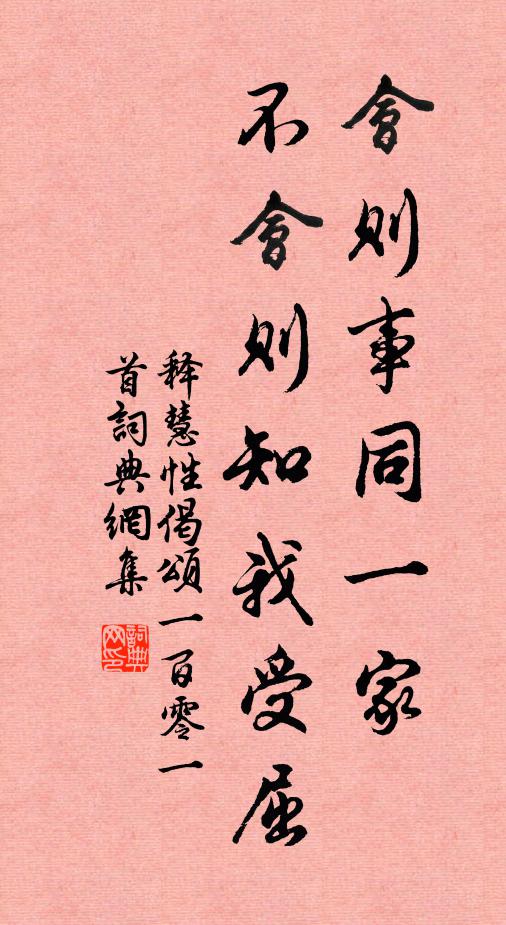 會則事同一家
不會則知我受屈
释慧性偈頌一百零一
首詞典網集
詞典网印